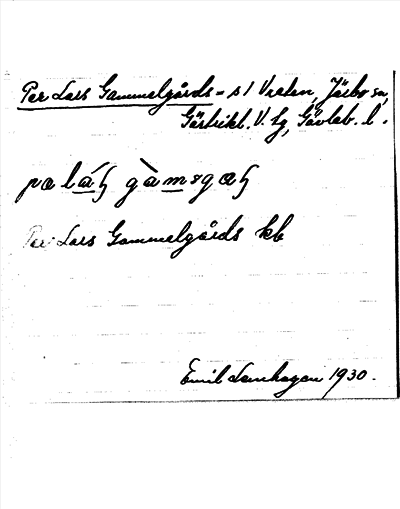 Per Lars Gammelgårds = s/ Vreten, Järbo sn,
Gästrikl. V. tg, Gävleb. l.
Per Lars Gammelgårds kb
Emil Lamhagen 1930.